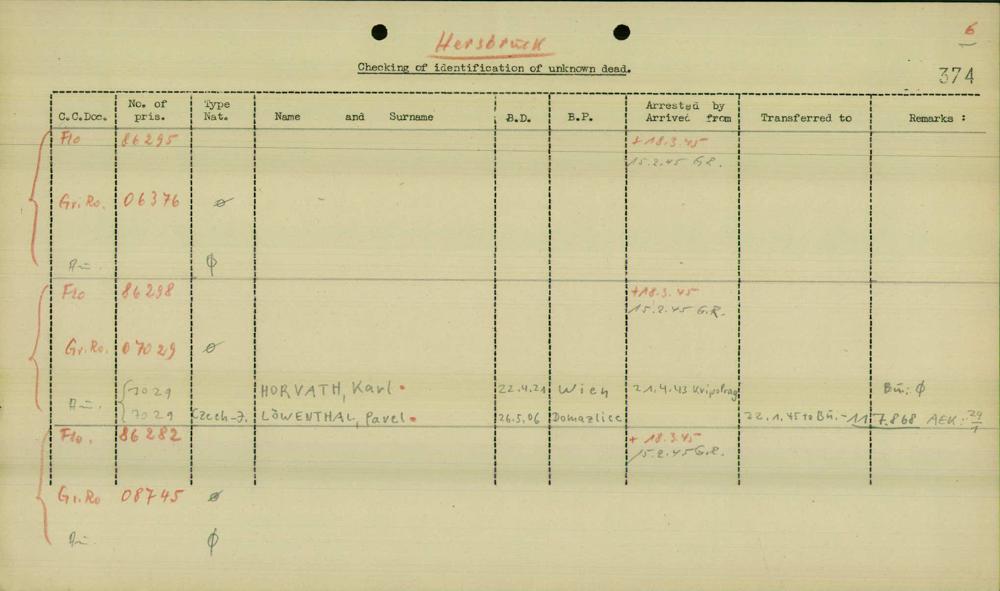 6
Hersbruck
Checking of identification of unknown dead.
374
C.C.Doc. No. of pris. Type Nat. Name and Surname B.D. B.P. Arrested by Arrived from Transferred to Remarks :
Flo 86295 + 18.3.45
15.2.45 G.R.
Gr.Ro. 06376 ø
Au. ϕ
Flo 86298 +18.3.45
15.2.45 G.R.
Gr.Ro. 07029 ø
7029 HORVATH, Karl 22.4.21 Wien 21.4.43 Kripo Prag Bu.: ϕ
Au. 7029 Czech-J. LÖWENTHAL, Pavel 26.5.06 Domazlice 22.1.45 to Bu. - 117.868 AEK: 29/1
Flo. 86282 + 18.3.45
15.2.45 G.R.
Gr.Ro 08745 ø
Au. ϕ